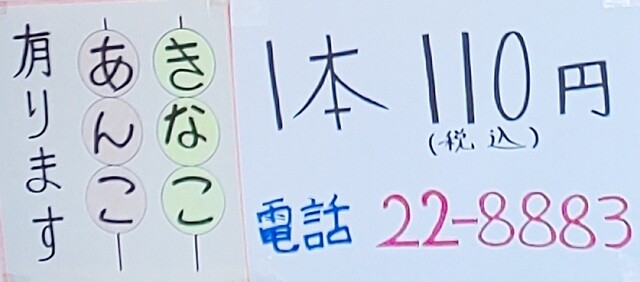 きなこ
あんこ
有ります
1本 110円
(税込)
電話 22-8883